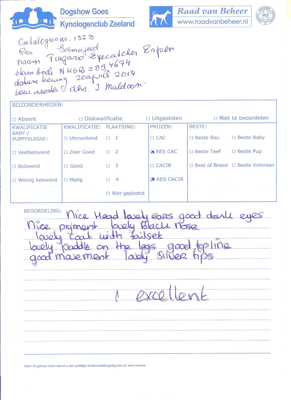 Dogshow Goes
Kynologenclub Zeeland
Raad van Beheer
www.raadvanbeheer.nl
Catalogusnr. 1323
Ras Samojeed
naam
stamboek NHSB 2894674
datum keuring 20 april 2014
keurmeester drs. J
BIJZONDERHEDEN:
□ Absent □ Diskwalificatie □ Uitgesloten □ Niet te beoordelen
KWALIFICATIE BABY / PUPPYKLASSE: KWALIFICATIE: PLAATSING: PRIJZEN: BESTE:
□ Veelbelovend □ Uitmuntend □ 1 □ CAC □ Beste Reu □ Beste Baby
□ Belovend □ Zeer Goed □ 2 RES-CAC □ Beste Teef □ Beste Pup
□ Weinig belovend □ Goed □ 3 □ CACIB □ Best of Breed □ Beste Veteraan
□ Matig □ 4 RES CACIB
□ Niet geplaatst
BEOORDELING: Nice Head lovely ears good dark eyes
Nice pigment lovely Black nose
lovely coat with tailset
lovely paddle on the legs good topline
good movement lovely silver tips
1 excellent